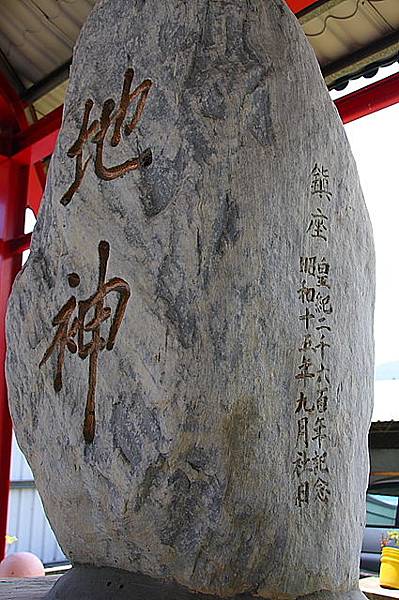 鎮座
皇紀二千六百年記念
昭和十五年九月社日
地神